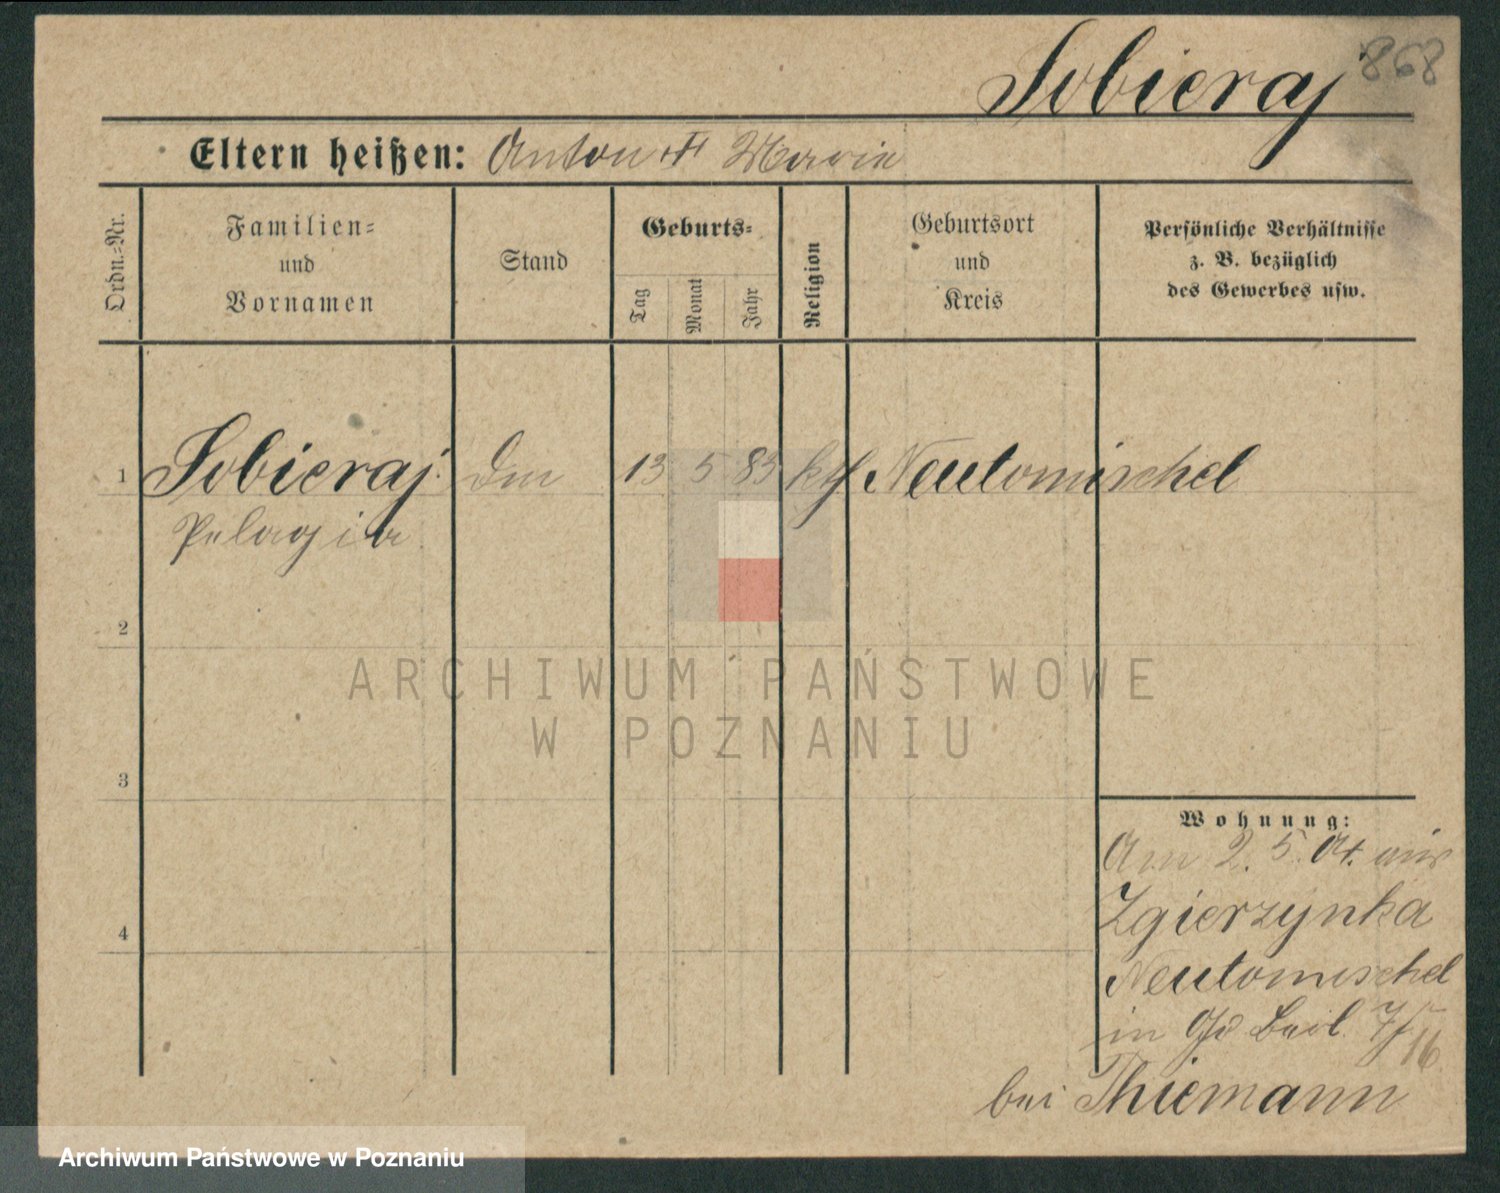 868
Sobieraj
Eltern heißen: Anton ✝ Marie
Ordn.-Nr.
Familien-
und
Vornamen
Stand
Geburts-
Tag
Monat
Jahr
Religion
Geburtsort
und
Kreis
Persönliche Verhältnisse
z. B. bezüglich
des Gewerbes usw.
1 Sobieraj 13 5 83 kth Neutomischel
Pelagia
2
3
4
Wohnung:
Am 2. 5. 04. aus
Zgierzynka
Neutomischel
in
16
bei Thiemann
ARCHIWUM PAŃSTWOWE
W POZNANIU
Archiwum Państwowe w Poznaniu